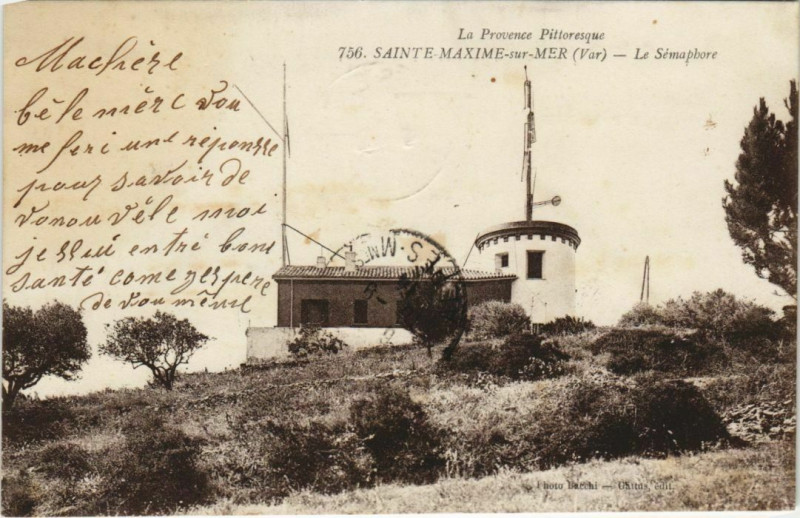 La Provence Pittoresque
756. SAINTE-MAXIME-sur-MER (Var) — Le Sémaphore
Machère
bèle mèrc vou
me feri une réponsse
pour savoir de
vonouvèle moi
je ssui entré bon
santé come
de vou même
S-M
Photo Bacchi — édit.